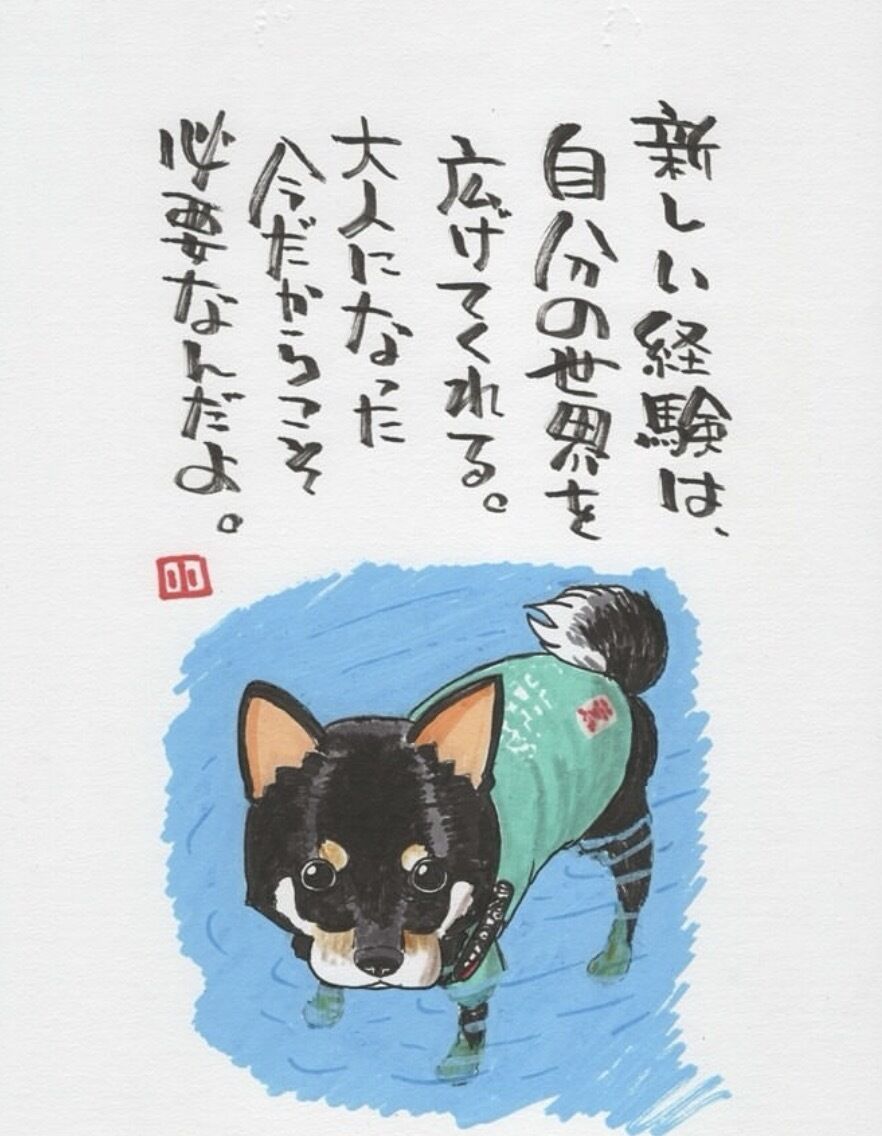 新しい経験は、
自分の世界を
広げてくれる。
大人になった
今だからこそ
必要なんだよ。